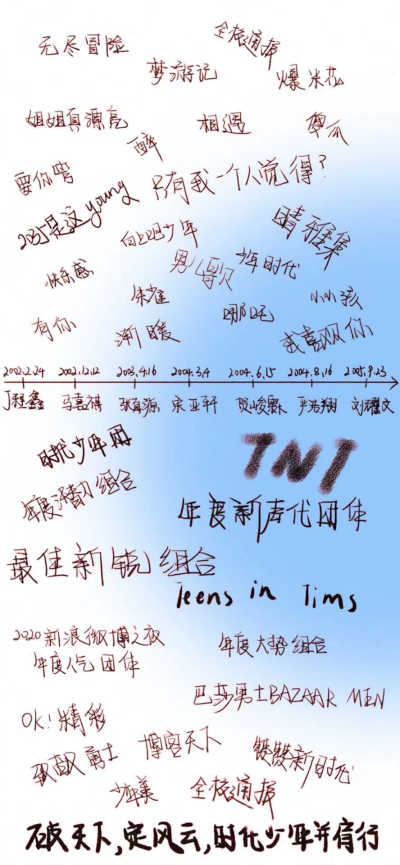 无尽冒险
全校通报
梦游记
爆米花
姐姐真漂亮
相遇
醉
要你管
只有我一个人觉得?
young
向上吧少年
晴雅集
男儿歌
少年时代
快乐感
朱雀
哪吒
小小孩
有你
渐暖
我喜欢你
2002.2.24 2002.12.12 2003.4.16 2004.3.4 2004.6.15 2004.8.16 2005.9.23
丁程鑫 马嘉祺 张真源 宋亚轩 贺峻霖 严浩翔 刘耀文
时代少年团
TNT
年度活力组合
年度新声代团体
最佳新锐组合
Teens in Tims
2020新浪微博之夜
年度人气团体
年度大势组合
巴莎男士BAZAAR MEN
OK!精彩
致敬勇士
博客天下
少年美
全校通报
破天下,定风云,时代少年并肩行